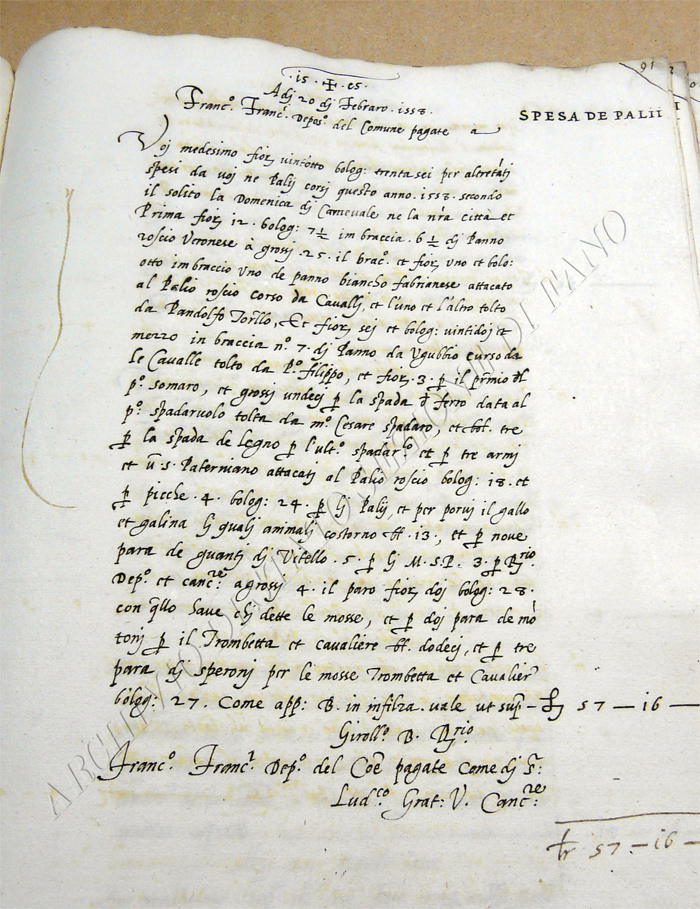 91
.is. ✠ .es.
Adj 20 dj Febraro. 1558.
SPESA DE PALII
Franc.º Franc.ⁱ Depos.º del Comune pagate a
Voj medesimo fior. vintotto bolog: trenta sei per altretāti
spesi da voj ne Palij corsi questo anno. 1558. secondo
il solito la Domenica dj Carnevale ne la nr̄a città et
Prima fior. 12. bolog: 7½ im braccia. 6½ dj Panno
roscio Veronese à grossi .25. il brac.º et fior. uno et bolo:
otto im braccio Uno de panno biancho fabrianese attacato
al Palio roscio corso da Cavallj, et l'uno et l'altro tolto
da Pandolfo , Et fior. sej et bolog: vintidoj et
mezzo in braccia n.º 7. dj Panno da Ugubbio curso da
le Cavalle tolto da P.º filippo, et fior. 3. ꝑ il p̄mio
p.º somaro, et grossi undecj ꝑ la spada de ferro data al
p.º spadaruolo tolta da m.º Cesare spadaro, et bol. tre
ꝑ la spada de legno ꝑ l'ult.º spadar.º et ꝑ tre armj
et ū S. Paterniano attacatj al Palio roscio bolog: 18. et
ꝑ picche .4. bolog: 24. ꝑ lj Palij, et per porvj il gallo
et galina lj qualj animalj costorno bl. 13., et ꝑ nove
para de guantj dj Vitello .5. ꝑ lj M.S.P. 3. ꝑ
Dep.º et canc.ʳᵉ a grossj 4. il paro fior. doj bolog: 28.
con q̄llo have chj dette le mosse, et ꝑ doj para de mō
tonj ꝑ il Trombetta et cavaliere bl. dodecj, et ꝑ tre
para dj speronj per le mosse Trombetta et Cavalier
bolog: 27. Come app: B. in infilza. vale ut sup̄ - fl 57 — 16 —
Giroll.º B.
Franc.º Franc.ⁱ Dep.º del Coē pagate Come dj s:
Lud.ᶜᵒ Grat: V. Canc.ʳᵉ
57 — 16 —
ARCHIVIO DI STATO SEZIONE DI FANO